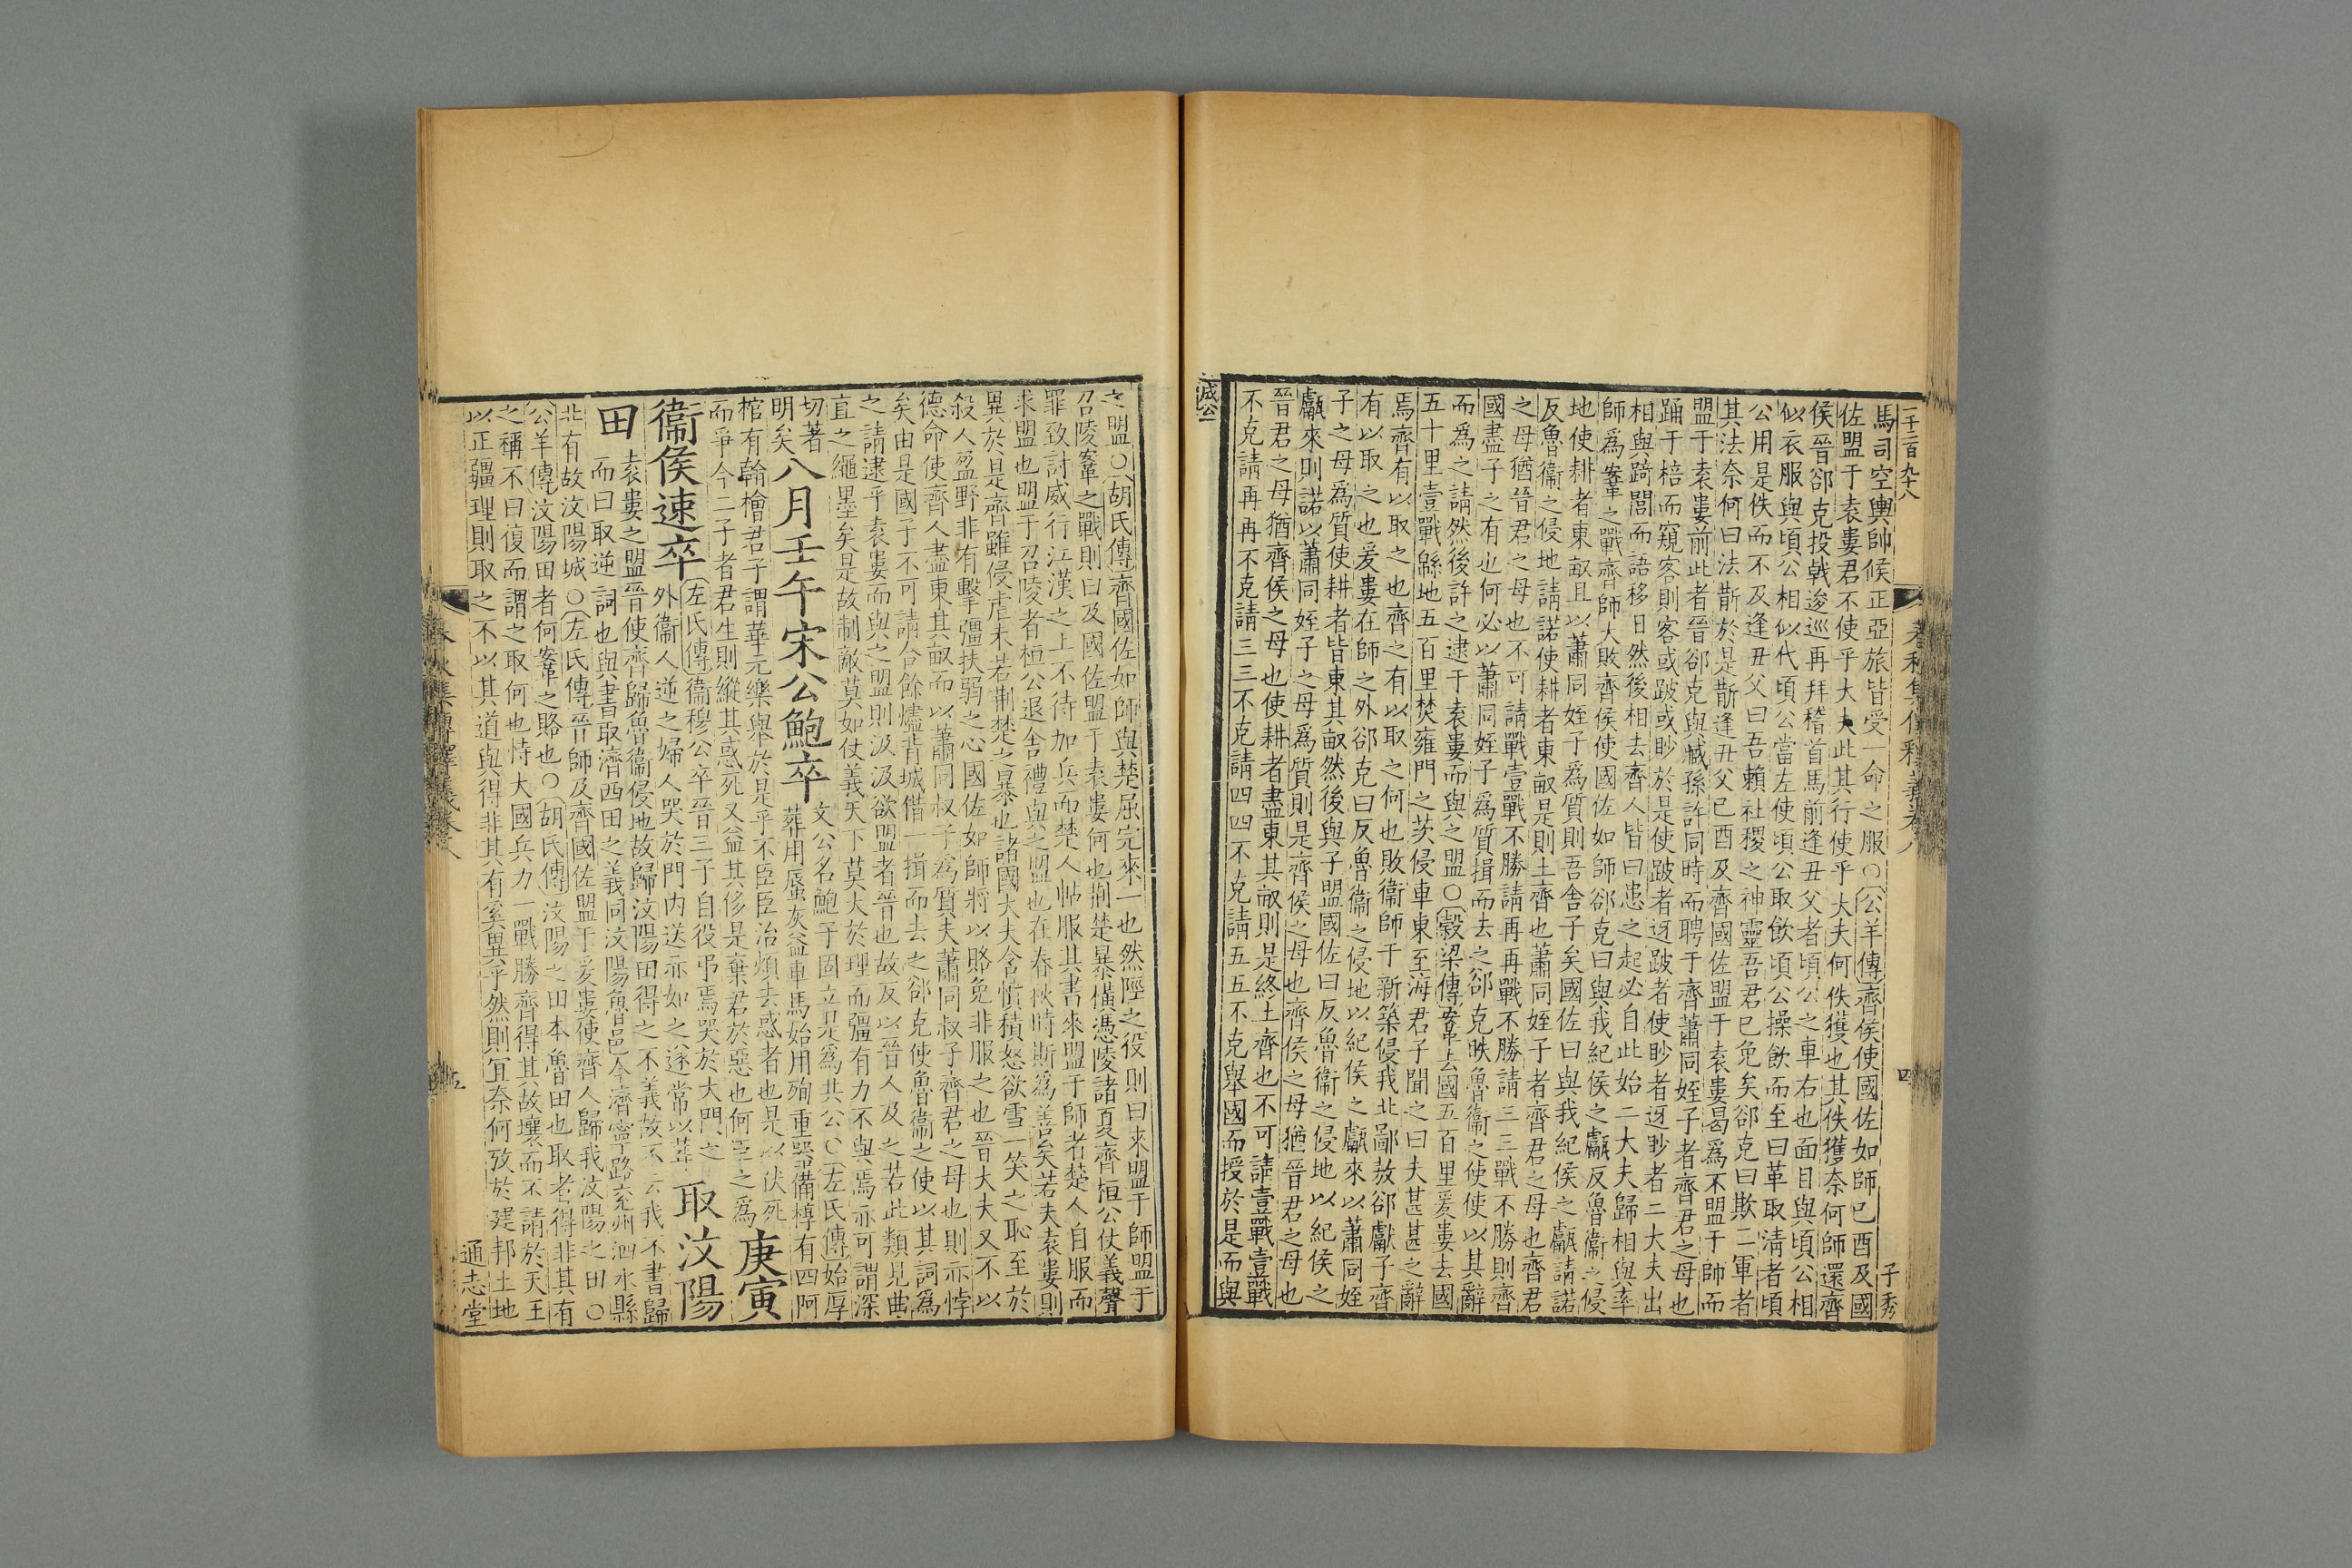 一千二百九十八
春秋集傳釋義卷八
四
子秀
馬司空輿帥候正亞旅皆受一命之服○公羊傳齊侯使國佐如師己酉及國
佐盟于袁婁君不使乎大夫此其行使乎大夫何佚獲也其佚獲奈何師還齊
侯晉郤克投戟逡巡再拜稽首馬前逢丑父者頃公之車右也面目與頃公相
似衣服與頃公相似代頃公當左使頃公取飲頃公操飲而至曰革取清者頃
公用是佚而不反逢丑父曰吾賴社稷之神靈吾君已免矣郤克曰欺三軍者
其法奈何曰法斮於是斮逢丑父己酉及齊國佐盟于袁婁曷爲不盟于師而
盟于袁婁前此者晉郤克與臧孫許同時而聘于齊蕭同姪子者齊君之母也
踊于棓而窺客則客或跛或眇於是使跛者迓跛者使眇者迓眇者二大夫出
相與踦閭而語移日然後相去齊人皆曰患之起必自此始二大夫歸相與率
師爲鞌之戰齊師大敗齊侯使國佐如師郤克曰與我紀侯之甗反魯衞之侵
地使耕者東畝且以蕭同姪子爲質則吾舍子矣國佐曰與我紀侯之甗請諾
反魯衞之侵地請諾使耕者東畝是則土齊也蕭同姪子者齊君之母也齊君
之母猶晉君之母也不可請戰壹戰不勝請再再戰不勝請三三戰不勝則齊
國盡子之有也何必以蕭同姪子爲質揖而去之郤克眣魯衞之使使以其辭
而爲之請然後許之逮于袁婁而與之盟○穀梁傳鞌去國五百里爰婁去國
五十里壹戰緜地五百里焚雍門之茨侵車東至海君子聞之曰夫甚甚之辭
焉齊有以取之也齊之有以取之何也敗衞師于新築侵我北鄙敖郤獻子齊
有以取之也爰婁在師之外郤克曰反魯衞之侵地以紀侯之甗來以蕭同姪
子之母爲質使耕者皆東其畝然後與子盟國佐曰反魯衞之侵地以紀侯之
甗來則諾以蕭同姪子之母爲質則是齊侯之母也齊侯之母猶晉君之母也
晉君之母猶齊侯之母也使耕者盡東其畝則是終土齊也不可請壹戰壹戰
不克請再再不克請三三不克請四四不克請五五不克舉國而授於是而與
成公
之盟○胡氏傳齊國佐如師與楚屈完來一也然陘之役則曰來盟于師盟于
召陵鞌之戰則曰及國佐盟于袁婁何也荆楚暴橫憑陵諸夏齊桓公仗義聲
罪致討威行江漢之上不待加兵而楚人帖服其書來盟于師者楚人自服而
求盟也盟于召陵者桓公退舍禮與之盟也在春秋時斯爲善矣若夫袁婁則
異於是齊雖侵虐未若荆楚之暴也諸國大夫含憤積怒欲雪一笑之恥至於
殺人盈野非有擊彊扶弱之心國佐如師將以賂免非服之也晉大夫又不以
德命使齊人盡東其畝而以蕭同叔子爲質夫蕭同叔子齊君之母也則亦悖
矣由是國子不可請合餘燼背城借一揖而去之郤克使魯衞之使以其詞爲
之請逮乎袁婁而與之盟則汲汲欲盟者晉也故反以晉人及之若此類見曲
直之繩墨矣是故制敵莫如仗義天下莫大於理而彊有力不與焉亦可謂深
切著明矣
八月壬午宋公鮑卒
文公名鮑子固立是爲共公○左氏傳始厚
葬用蜃灰益車馬始用殉重器備椁有四阿
棺有翰檜君子謂華元樂舉於是乎不臣臣治煩去惑者也是以伏死
而爭今二子者君生則縱其惑死又益其侈是棄君於惡也何臣之爲
庚寅
衞侯速卒
左氏傳衞穆公卒晉三子自役弔焉哭於大門之
外衞人逆之婦人哭於門内送亦如之遂常以葬
取汶陽
田
袁婁之盟晉使齊歸魯衞侵地故歸汶陽田得之不義故不云我不書歸
而曰取逆詞也與書取濟西田之義同汶陽魯邑今濟寧路兗州泗水縣
北有故汶陽城○左氏傳晉師及齊國佐盟于爰婁使齊人歸我汶陽之田○
公羊傳汶陽田者何鞌之賂也○胡氏傳汶陽之田本魯田也取者得非其有
之稱不曰復而謂之取何也恃大國兵力一戰勝齊得其故壤而不請於天王
以正疆理則取之不以其道與得非其有奚異乎然則宜奈何攷於建邦土地
春秋集傳釋義卷八
五
通志堂